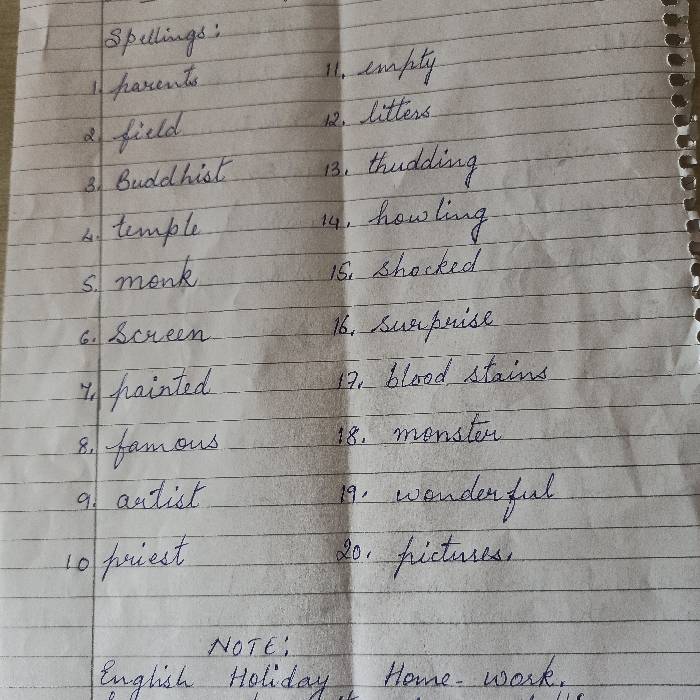 Spellings:
1. parents
2. field
3. Buddhist
4. temple
5. monk
6. Screen
7. painted
8. famous
9. artist
10 priest
11. empty
12. litters
13. thudding
14. howling
15. shocked
16. surprise
17. blood stains
18. monster
19. wonderful
20. pictures.
NOTE:
English Holiday Home-work.